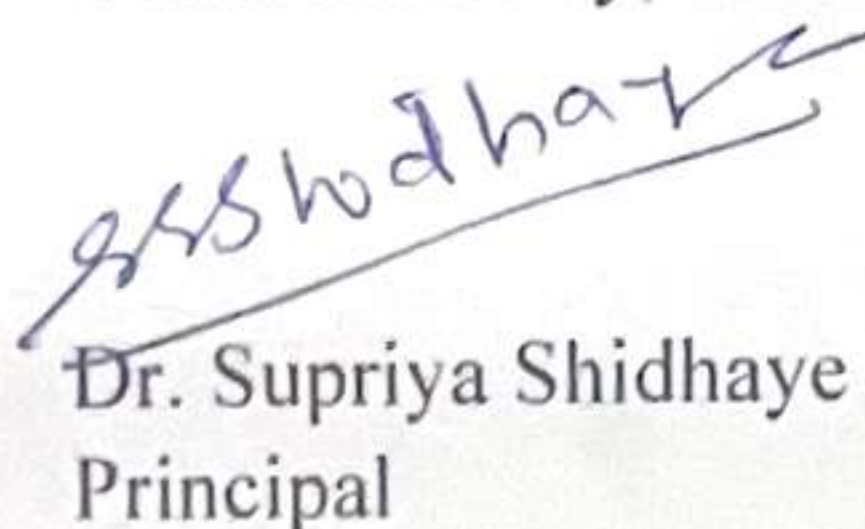 SSShidhaye
Dr. Supriya Shidhaye
Principal